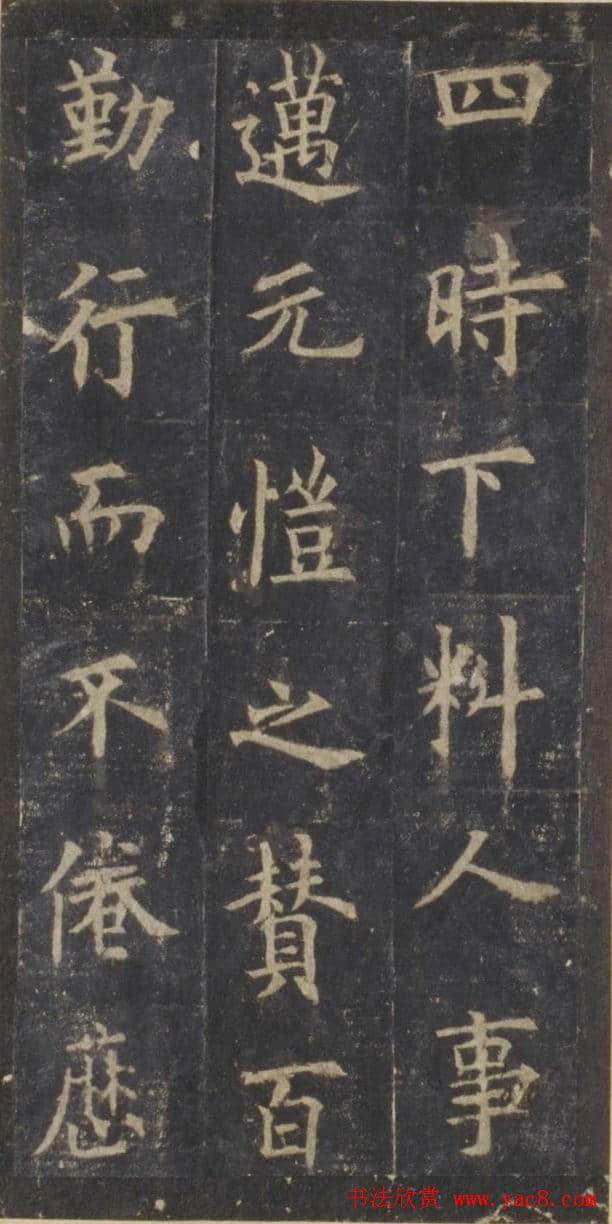 四時下料人事
邁元愷之賛百
勤行而不倦
书法欣赏 www.yac8.com